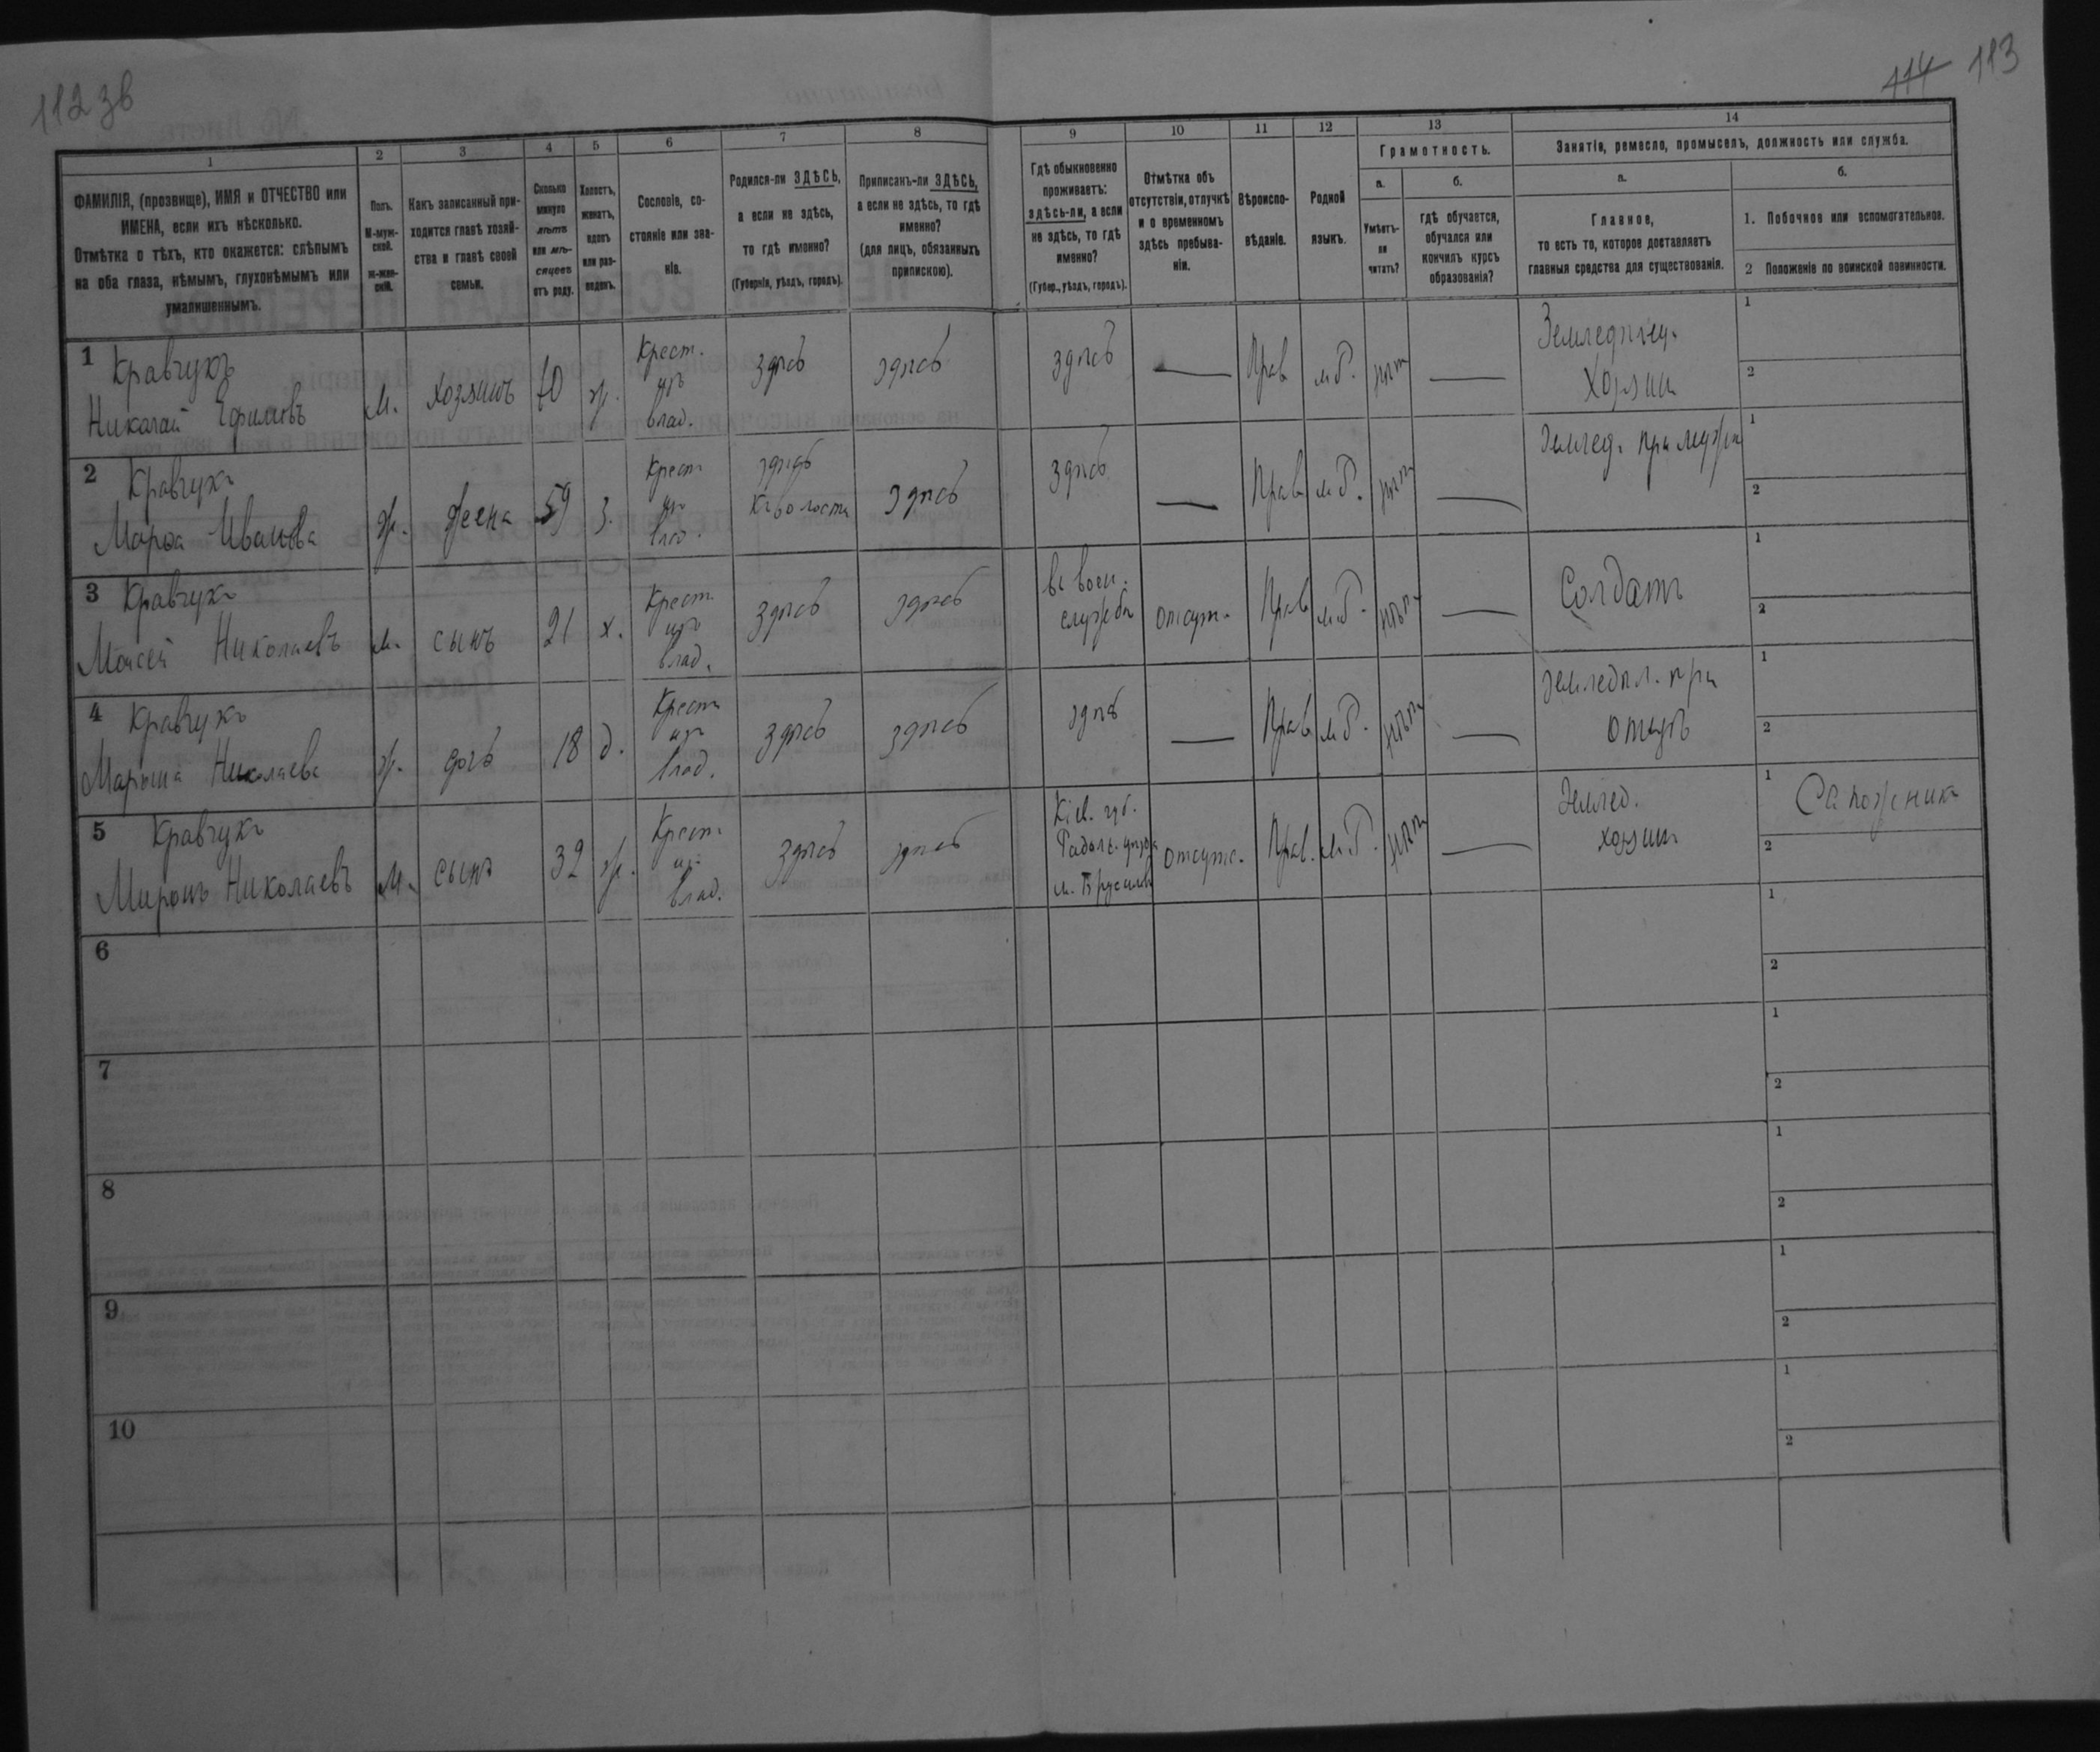 112 зв
114 113
1 2 3 4 5 6 7 8 9 10 11 12 13 14
ФАМИЛІЯ, (прозвище), ИМЯ и ОТЧЕСТВО или
ИМЕНА, если ихъ нѣсколько.
Отмѣтка о тѣхъ, кто окажется: слѣпымъ
на оба глаза, нѣмымъ, глухонѣмымъ или
умалишеннымъ.
Полъ.
М-муж-
ской.
ж-жен-
скій.
Какъ записанный при-
ходится главѣ хозяй-
ства и главѣ своей
семьи.
Сколько
минуло
лѣтъ
или мѣ-
сяцевъ
отъ роду.
Холостъ,
женатъ,
вдовъ
или раз-
веденъ.
Сословіе, со-
стояніе или зва-
ніе.
Родился-ли ЗДѢСЬ,
а если не здѣсь,
то гдѣ именно?
(Губернія, уѣздъ, городъ).
Приписанъ-ли ЗДѢСЬ,
а если не здѣсь, то гдѣ
именно?
(для лицъ, обязанныхъ
припискою).
Гдѣ обыкновенно
проживаетъ:
здѣсь-ли, а если
не здѣсь, то гдѣ
именно?
(Губер., уѣздъ, городъ).
Отмѣтка объ
отсутствіи, отлучкѣ
и о временномъ
здѣсь пребыва-
ніи.
Вѣроиспо-
вѣданіе.
Родной
языкъ.
Грамотность.
а.
Умѣетъ-
ли
читать?
б.
гдѣ обучается,
обучался или
кончилъ курсъ
образованія?
Занятія, ремесло, промыселъ, должность или служба.
а.
Главное,
то есть то, которое доставляетъ
главныя средства для существованія.
б.
1. Побочное или вспомогательное.
2 Положеніе по воинской повинности.
1 Кравчукъ
Николай Ефимовъ
м. хозяинъ 60 ж.
Крест.
изъ
влад.
здѣсь здѣсь здѣсь — Прав м.р. нѣт —
Земледѣлец.
Хозяин
1
2
2 Кравчукъ
Марфа Иванова
ж. жена 59 з.
Крест
изъ
влад.
здѣсь
здѣсь здѣсь — Прав м.р. нѣт —
Землед. при мужѣ
1
2
3 Кравчукъ
Моисей Николаевъ
м. сынъ 21 х.
Крест
изъ
влад.
здѣсь здѣсь
въ воен.
службѣ
отсут. Прав м.р. нѣт —
Солдатъ
1
2
4 Кравчукъ
Марьяна Николаева
ж. дочь 18 д.
Крест
изъ
влад.
здѣсь здѣсь здѣсь — Прав м.р. нѣт —
земледѣл. при
отцѣ
1
2
5 Кравчукъ
Миронъ Николаевъ
м. сынъ 32 ж.
Крест
изъ
влад.
здѣсь здѣсь
Кіев. губ.
м. Брусилов
отсутс. Прав. м.р. нѣт —
Землед.
хозяин
1 Сапожник
2
6
1
2
7
1
2
8
1
2
9
1
2
10
1
2